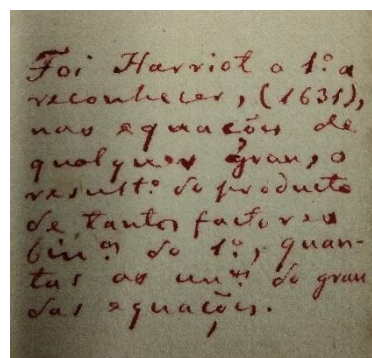 Foi Harriot o 1.º a
reconhecer, (1631),
nas equações de
qualquer grau, o
result.º do producto
de tantos factores
bin.os do 1.º, quan-
tas as un.es do grau
das equações.